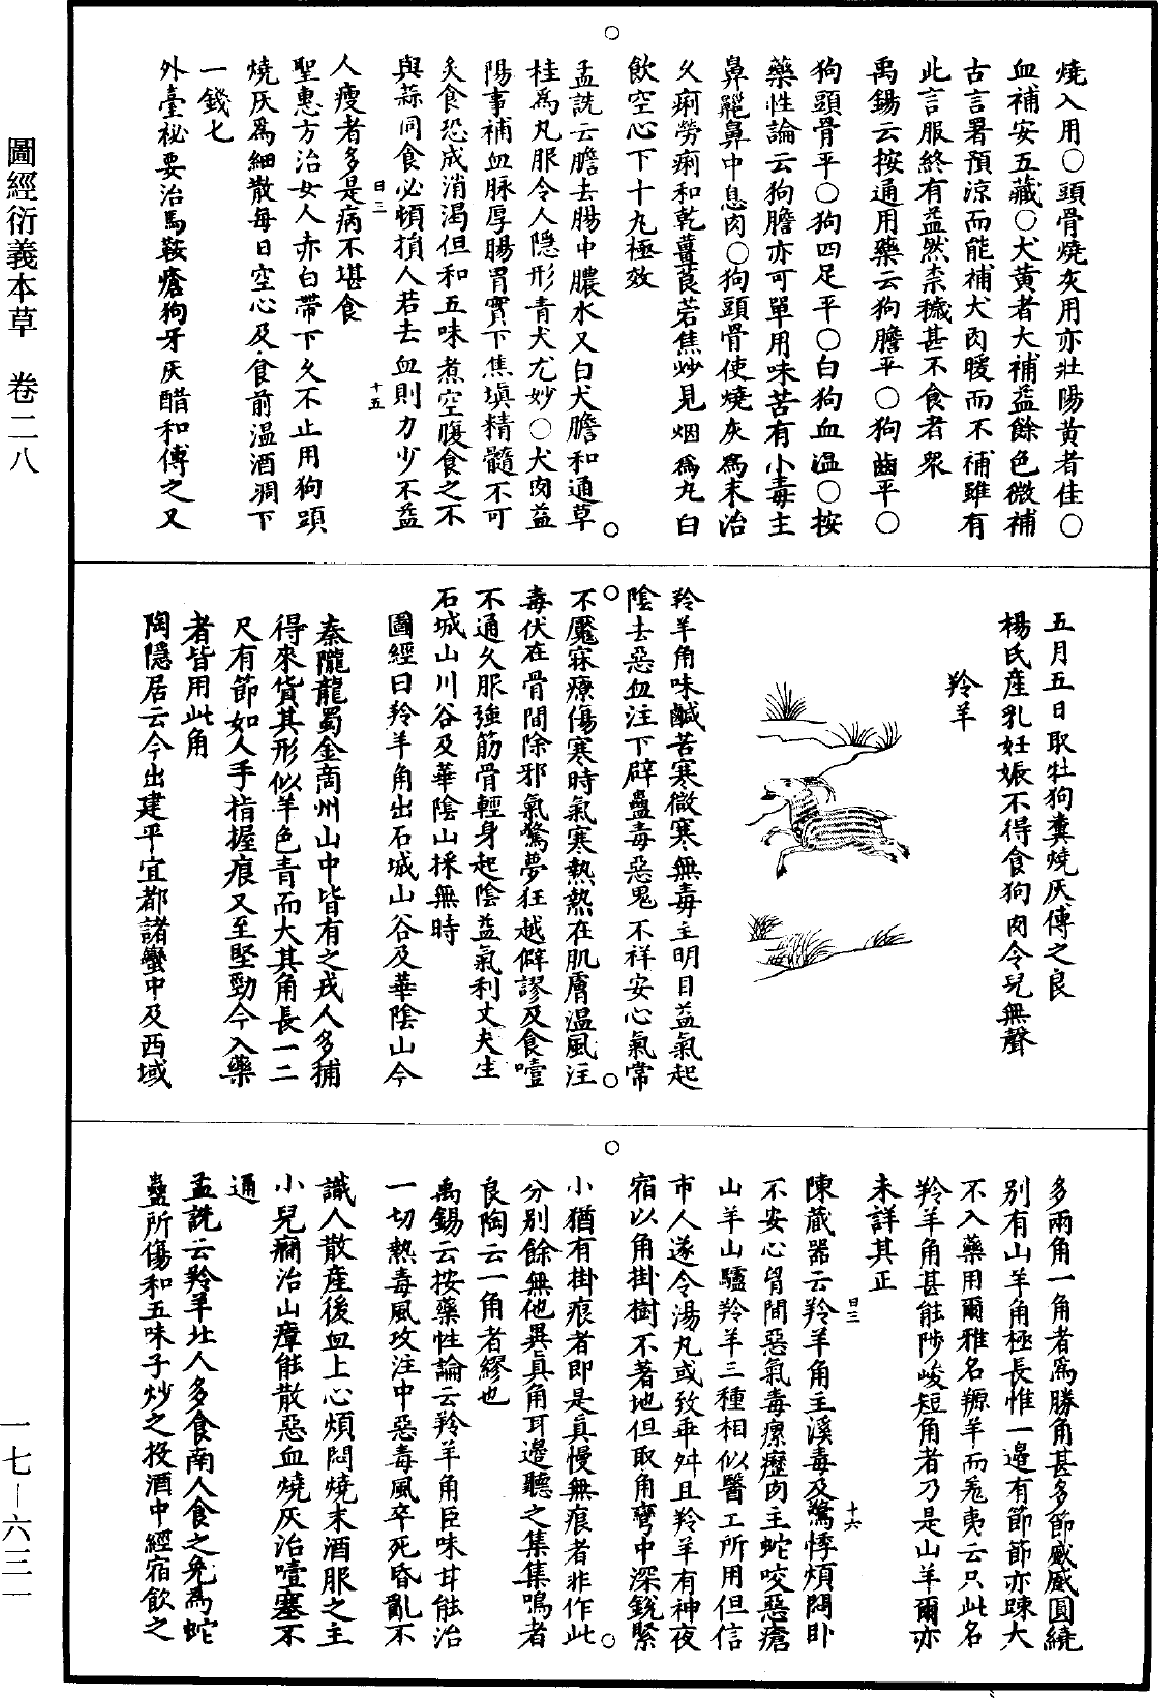 圖經衍義本草　卷二八
燒入用○頭骨燒灰用亦壯陽黄者佳○
血補安五藏○犬黄者大補益餘色微補
古言署預涼而能補犬肉暖而不補雖有
此言服終有益然柰穢甚不食者衆
禹錫云按通用藥云狗膽平○狗齒平○
狗頭骨平○狗四足平○白狗血温○按
藥性論云狗膽亦可單用味苦有小毒主
鼻齆鼻中息肉○狗頭骨使燒灰爲末治
久痢勞痢和乾薑莨菪焦炒見烟爲丸白
飲空心下十九極效
孟詵云膽去腸中膿水又白犬膽和通草
桂爲丸服令人隱形青犬尤妙○犬肉益
陽事補血脉厚腸胃實下焦塡精髓不可
炙食恐成消渴但和五味煮空腹食之不
與蒜同食必頓損人若去血則力少不益
人瘦者多是病不堪食
曰三
十五
聖惠方治女人赤白帶下久不止用狗頭
燒灰爲細散每日空心及食前温酒調下
一錢匕
外臺祕要治馬鞍瘡狗牙灰醋和傅之又
五月五日取牡狗糞燒灰傅之良
楊氏産乳妊娠不得食狗肉令兒無聲
羚羊
羚羊角味鹹苦寒微寒無毒主明目益氣起
陰去惡血注下辟蠱毒惡鬼不祥安心氣常
不魘寐療傷寒時氣寒熱熱在肌膚温風注
毒伏在骨間除邪氣驚夢狂越僻謬及食噎
不通久服强筋骨輕身起陰益氣利丈夫生
石城山川谷及華陰山採無時
圖經曰羚羊角出石城山谷及華陰山今
秦隴龍蜀金商州山中皆有之戎人多捕
得來貨其形似羊色青而大其角長一二
尺有節如人手指握痕又至堅勁今入藥
者皆用此角
陶隱居云今出建平宜都諸蠻中及西域
多兩角一角者爲勝角甚多節蹙蹙圓繞
别有山羊角極長惟一邊有節節亦踈大
不入藥用爾雅名羱羊而羗夷云只此名
羚羊角甚能陟峻短角者乃是山羊爾亦
未詳其正
曰三
十六
陳藏器云羚羊角主溪毒及驚悸煩悶卧
不安心胷間惡氣毒瘰癧肉主蛇咬惡瘡
山羊山驢羚羊三種相似醫工所用但信
市人遂令湯丸或致乖舛且羚羊有神夜
宿以角掛樹不著地但取角彎中深銳緊
小猶有掛痕者即是真慢無痕者非作此
分别餘無他異真角耳邊聽之集集鳴者
良陶云一角者繆也
禹錫云按藥性論云羚羊角臣味甘能治
一切熱毒風攻注中惡毒風卒死昏亂不
識人散産後血上心煩悶燒末酒服之主
小兒癇治山瘴能散惡血燒灰治噎塞不
通
孟詵云羚羊北人多食南人食之免爲蛇
蟲所傷和五味子炒之投酒中經宿飲之
一七—六三一